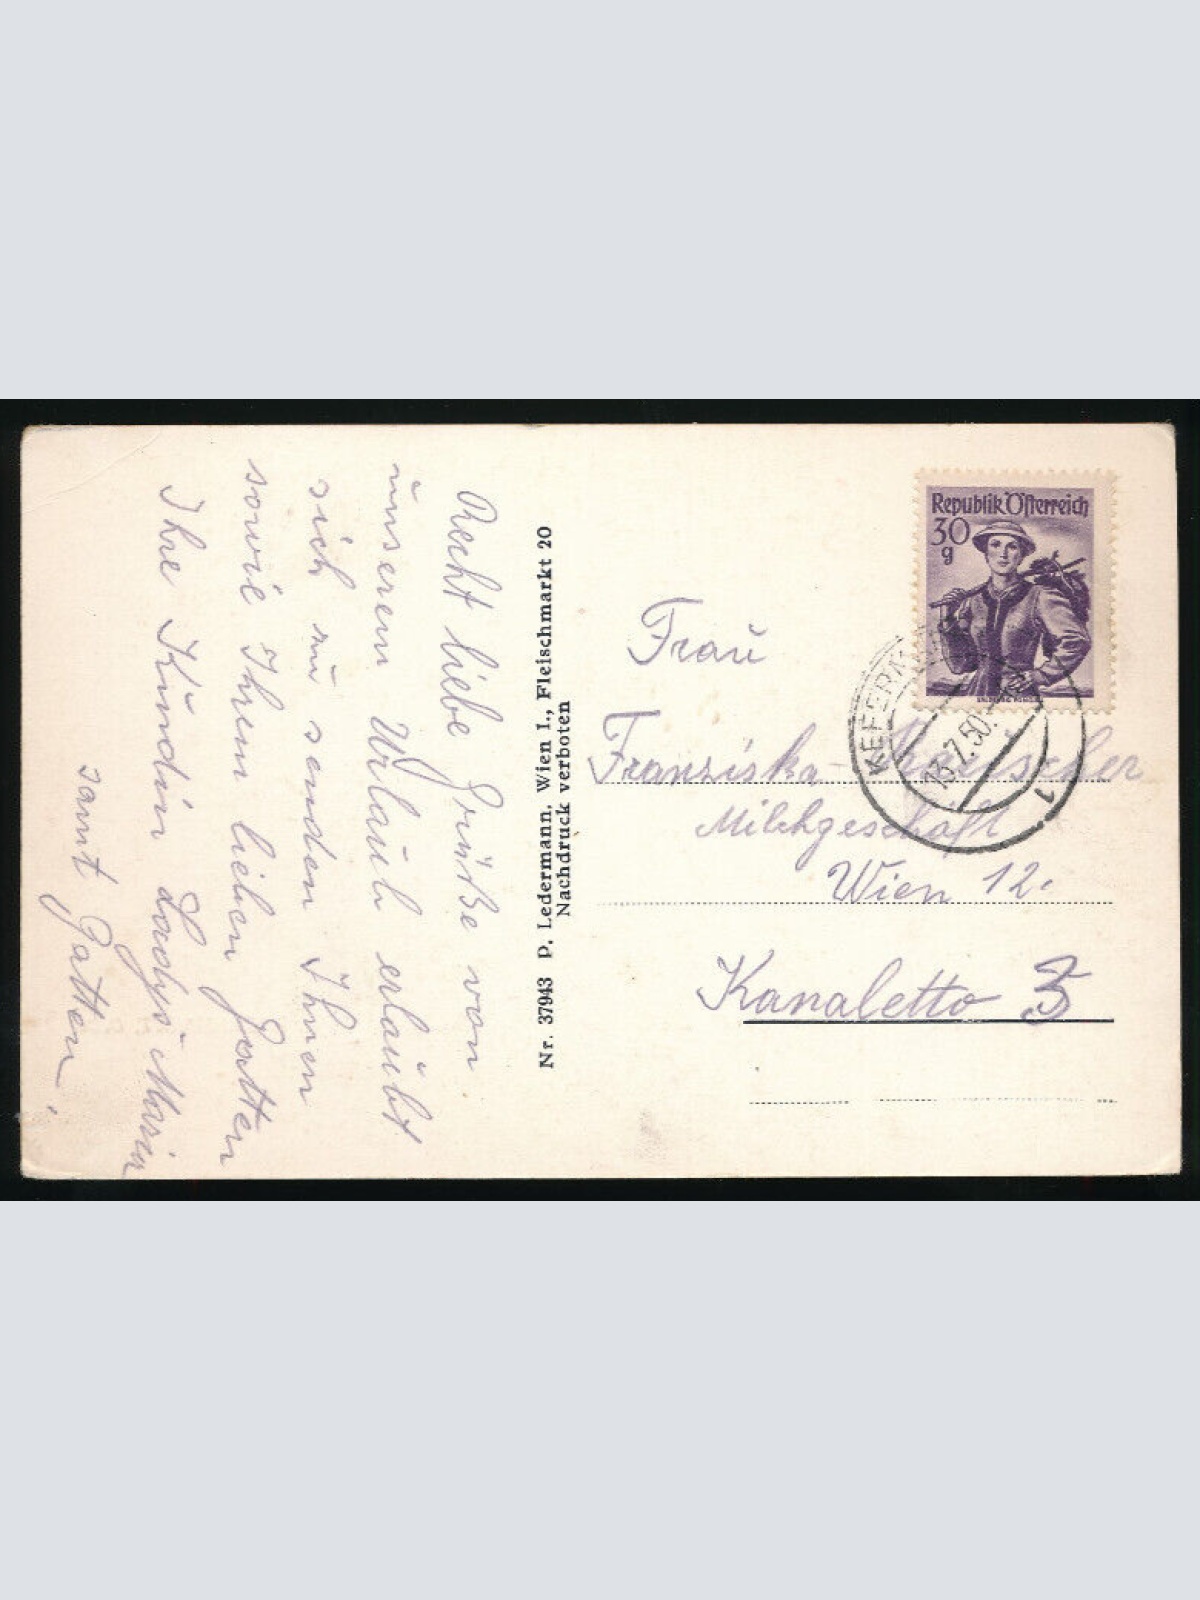 Recht liebe Grüße von
unserem Urlaub erlaubt
sich zu senden Ihnen
sowie Ihrem lieben Gatten
Ihre Kundin Maria
samt Gatten.
Nr. 37943 P. Ledermann, Wien I., Fleischmarkt 20
Nachdruck verboten
Republik Österreich
30
g
KEFERM
13.7.50
1
Frau
Franziska
Milchgeschäft
Wien 12.
Kanaletto 3